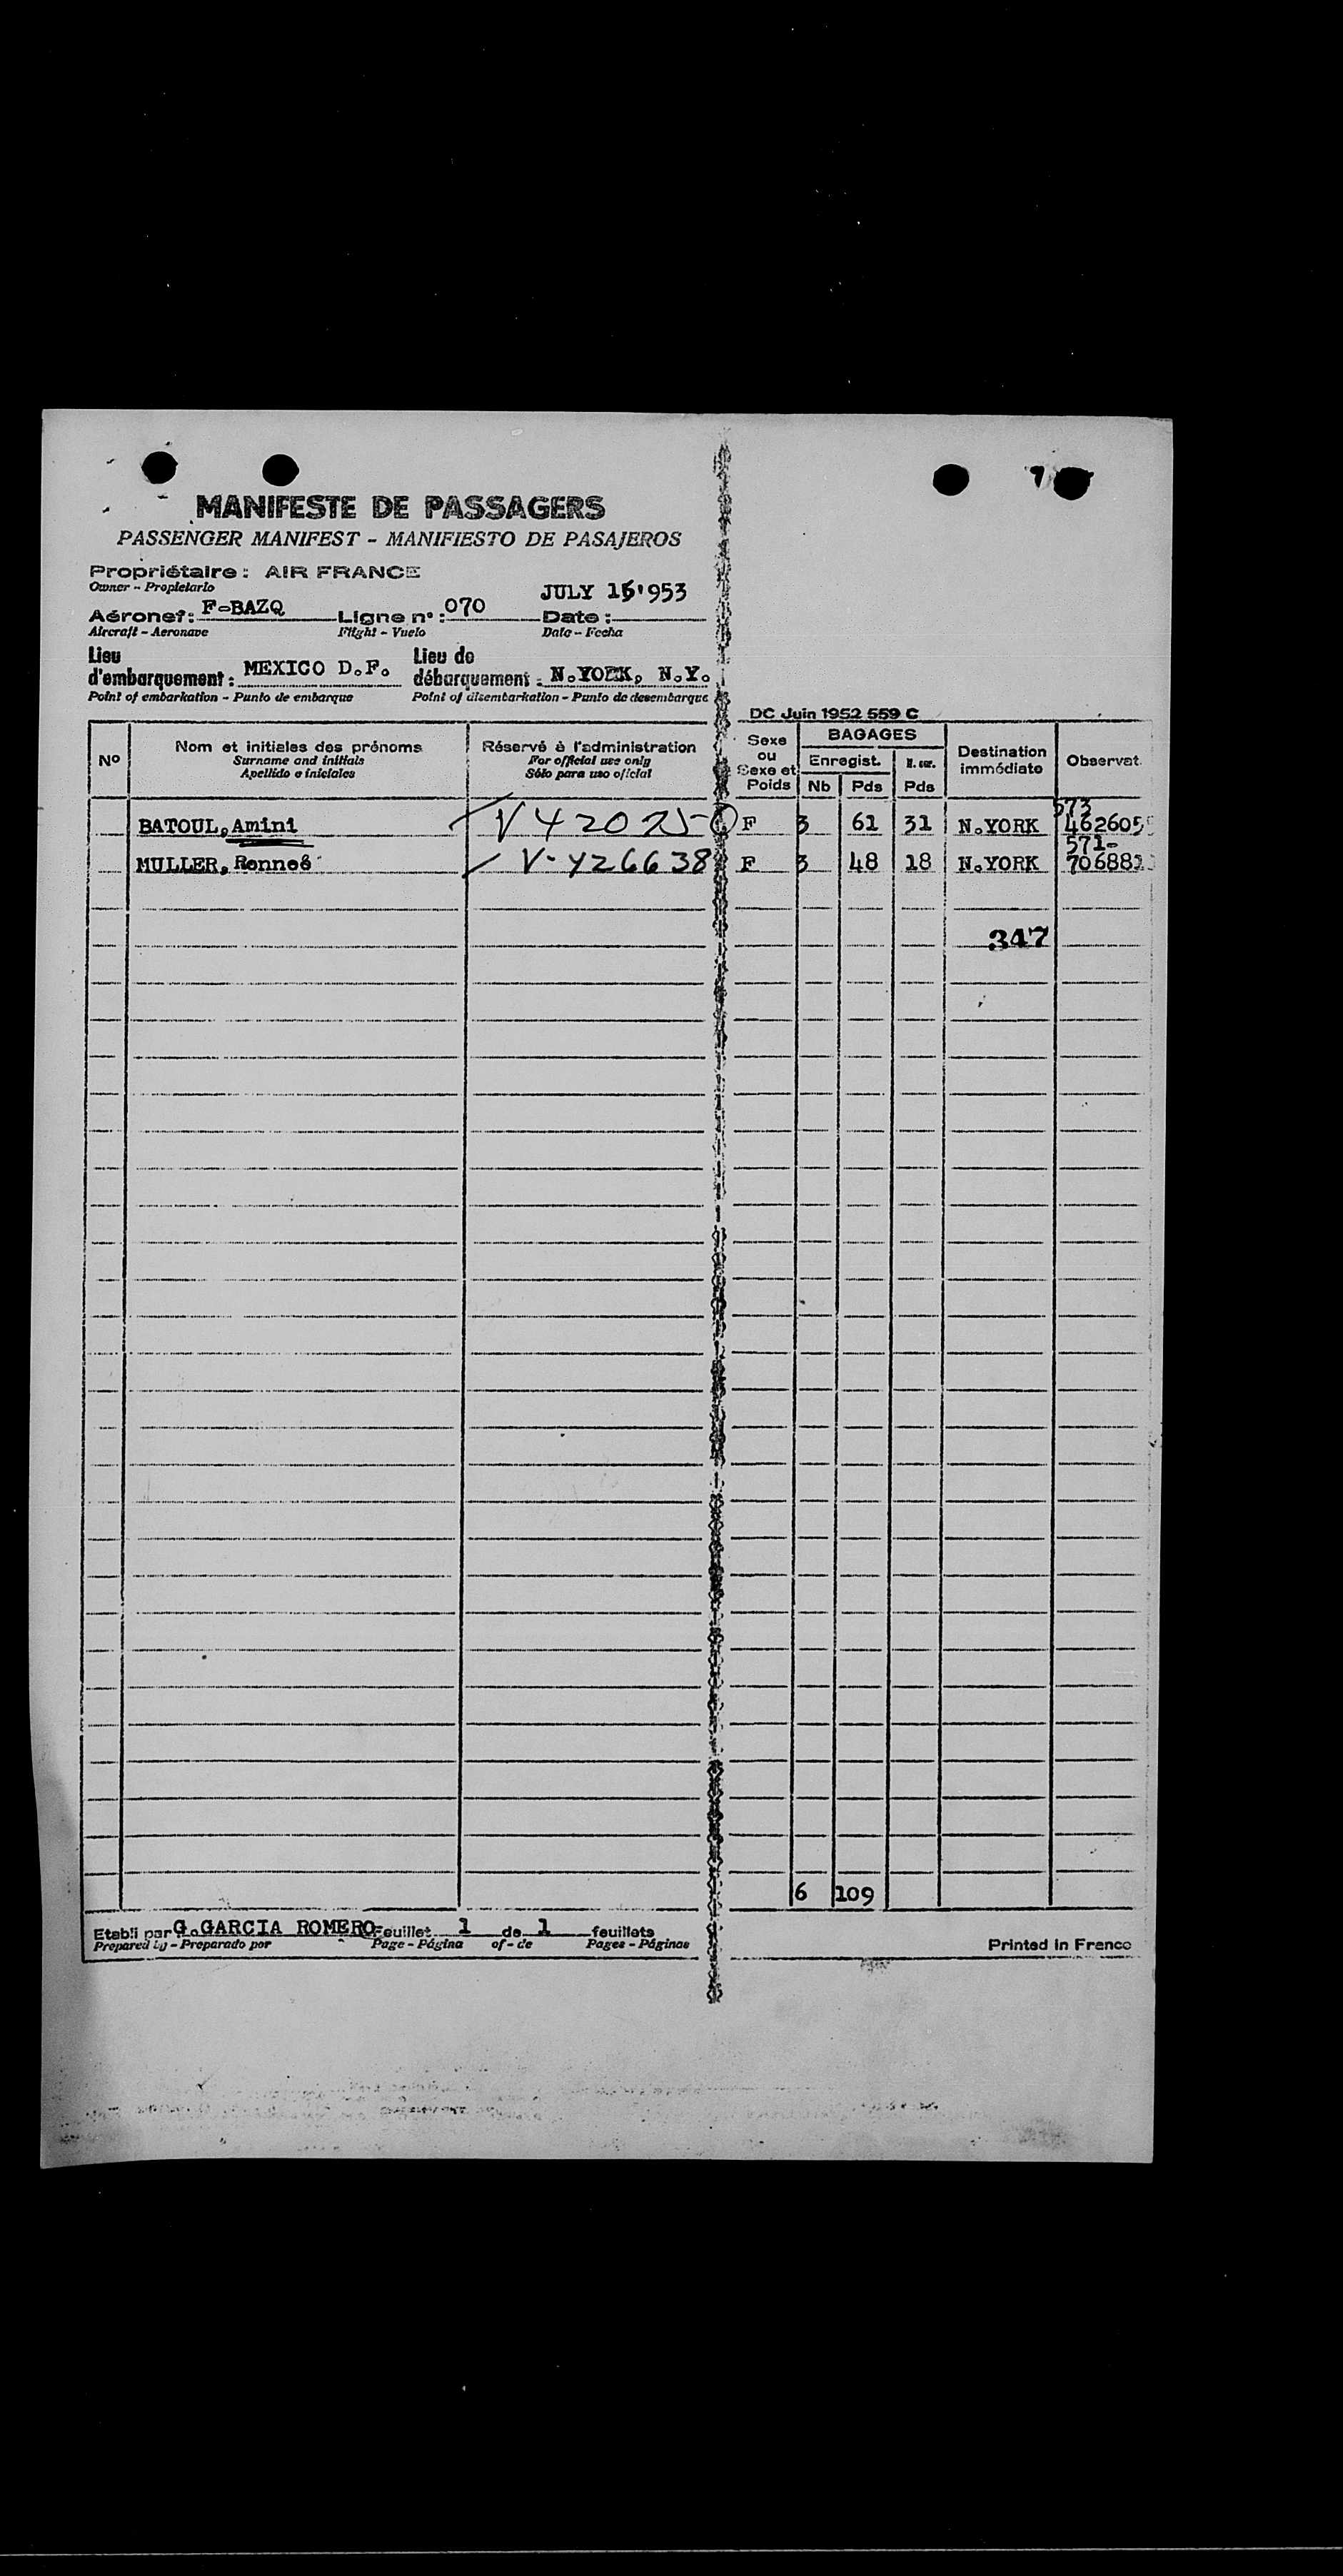 MANIFESTE DE PASSAGERS
PASSENGER MANIFEST - MANIFIESTO DE PASAJEROS
Propriétaire : AIR FRANCE
Owner - Propietario
JULY 15'953
Aéronef : F-BAZQ Ligne n° : 070 Date :
Aircraft - Aeronave Flight - Vuelo Date - Fecha
Lieu d'embarquement : MEXICO D.F. Lieu de débarquement : N.YORK, N.Y.
Point of embarkation - Punto de embarque Point of disembarkation - Punto de desembarque
DC Juin 1952 559 C
N° Nom et initiales des prénoms Réservé à l'administration Sexe ou Sexe et Poids BAGAGES Destination immédiate Observat.
Surname and initials For official use only Enregist.
Apellido e iniciales Sólo para uso oficial Nb Pds Pds
573
BATOUL, Amini V 420250 F 3 61 31 N.YORK 462605
571-
MULLER, Renneé V-426638 F 3 48 18 N.YORK 706882
347
6 109
Etabli par G.GARCIA ROMERO Feuillet 1 de 1 feuillets
Prepared by - Preparado por Page - Página of - de Pages - Páginas Printed in France